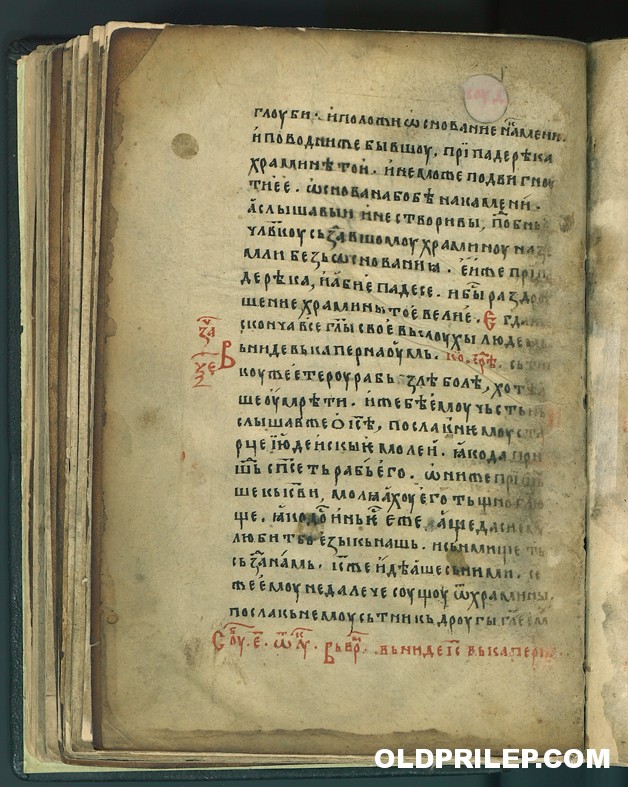 глоуби · и положи ѡснование на камени ·
и поводниже бывшоу, припаде рѣка
храминѣ той · и не може подвигноу
ти ее · ѡснована бо бѣ на камени ·
а слышавыи и не створивы, подобнь
чл҃вкоу създавшомоу храминоу на зе
мли безь ѡснованиꙗ · ѥиже при
де рѣка, и абие падесе · и бы раздроу
шение храмины тое велие · Егда
сконча все гл҃ы свое вь слоухы люде
вьниде вь капернаоумь ·
коуже етероу рабь злѣ болѣ, хотѣ
ше оумрѣти · иже бѣ емоу чьстьнь
слышавже о і҃сѣ, посла к нѥмоу
рце июдеискые молеи · ꙗко да при
шьⷣ сп҃сеть раба его · ѡниже
ше кь і҃сви, молꙗхоу его тьщно
ще · ꙗко достоинь ѥ еже · аще даси
любить бо езыкь нашь · и сьнмище
сьзⷣа намь · і҃сже идѣаше сь ними · се
же емоу недалече соущоу ѿ храмины ·
посла кь немоу сьтникь дроугы гл҃е ем
вьниде і҃с вь капер
OLDPRILEP.COM